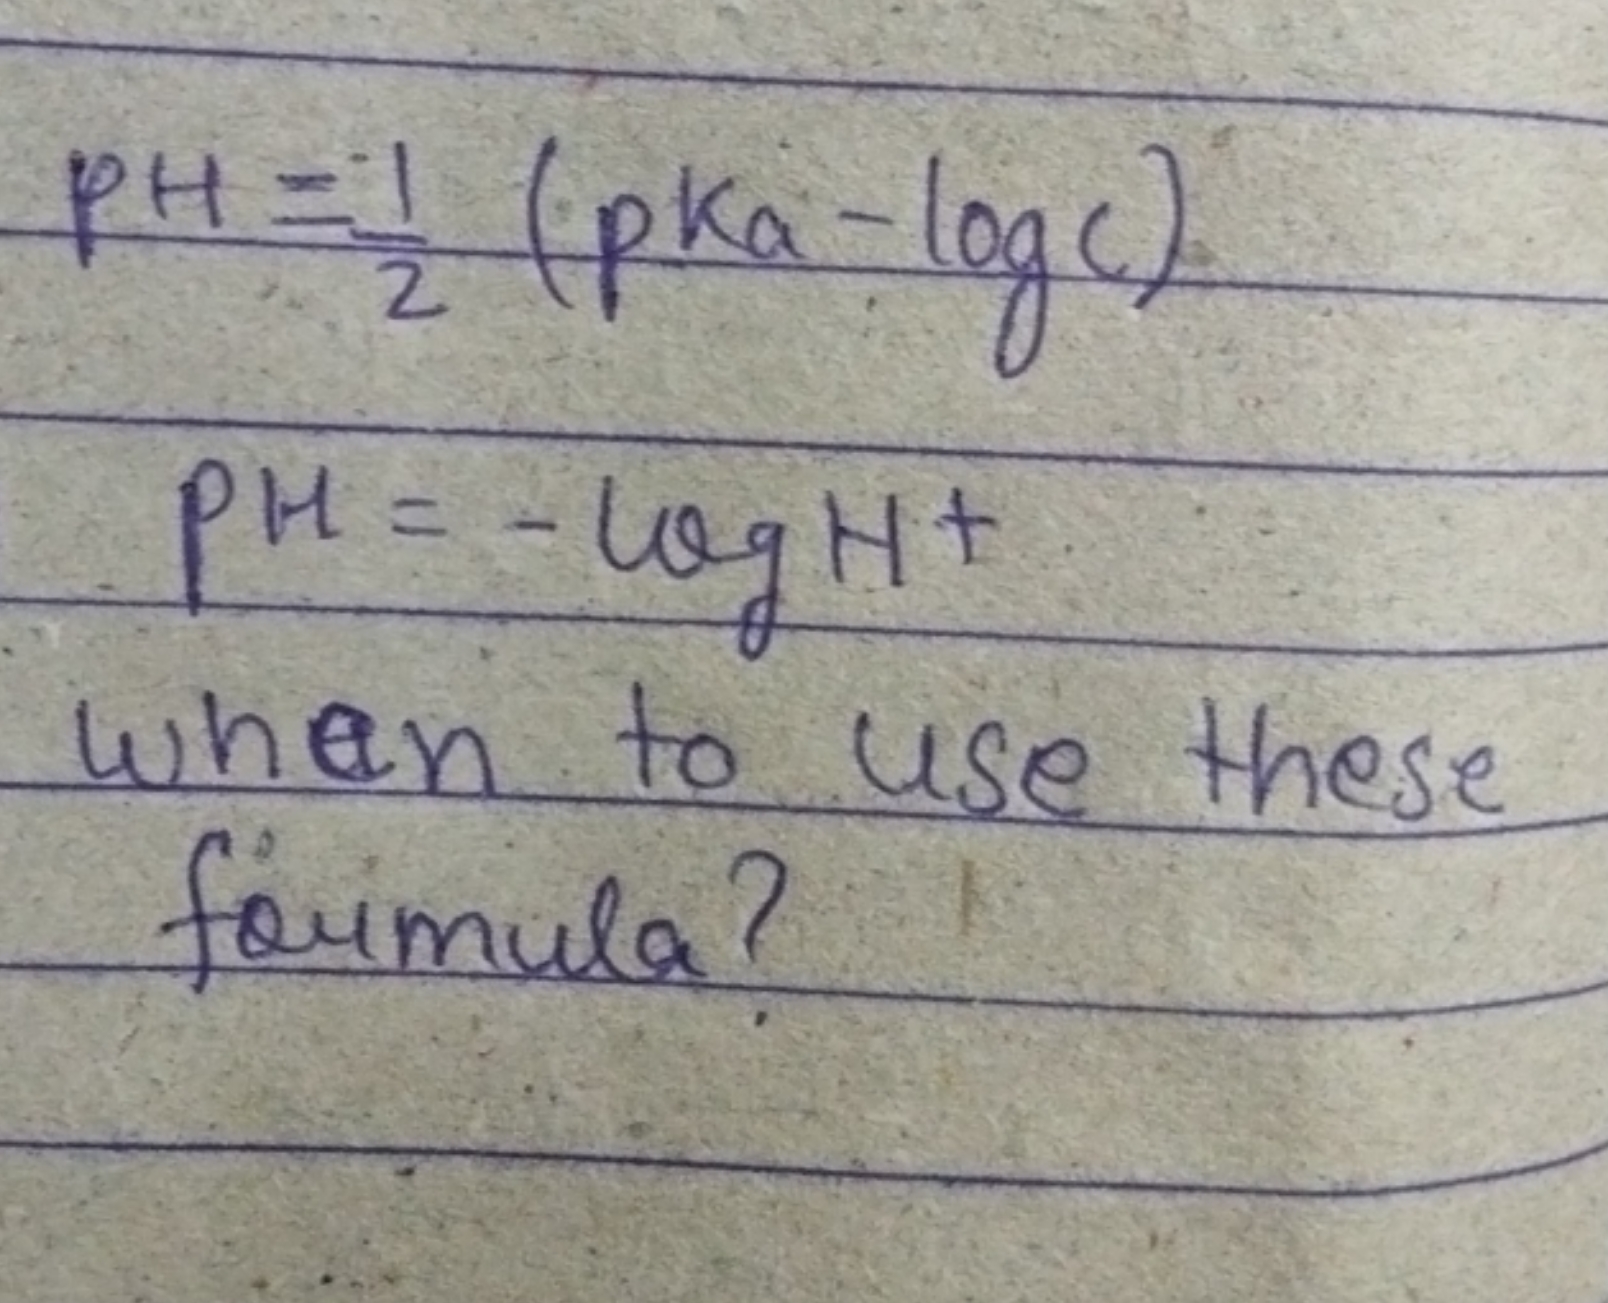 pH = 1/2 (pKa - log c)
pH = - log H+
when to use these
formula?